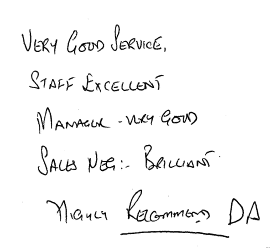 VERY GOOD SERVICE,
STAFF EXCELLENT
MANAGER - VERY GOOD
SALES NEG:- BRILLIANT
HIGHLY RECOMMEND DA